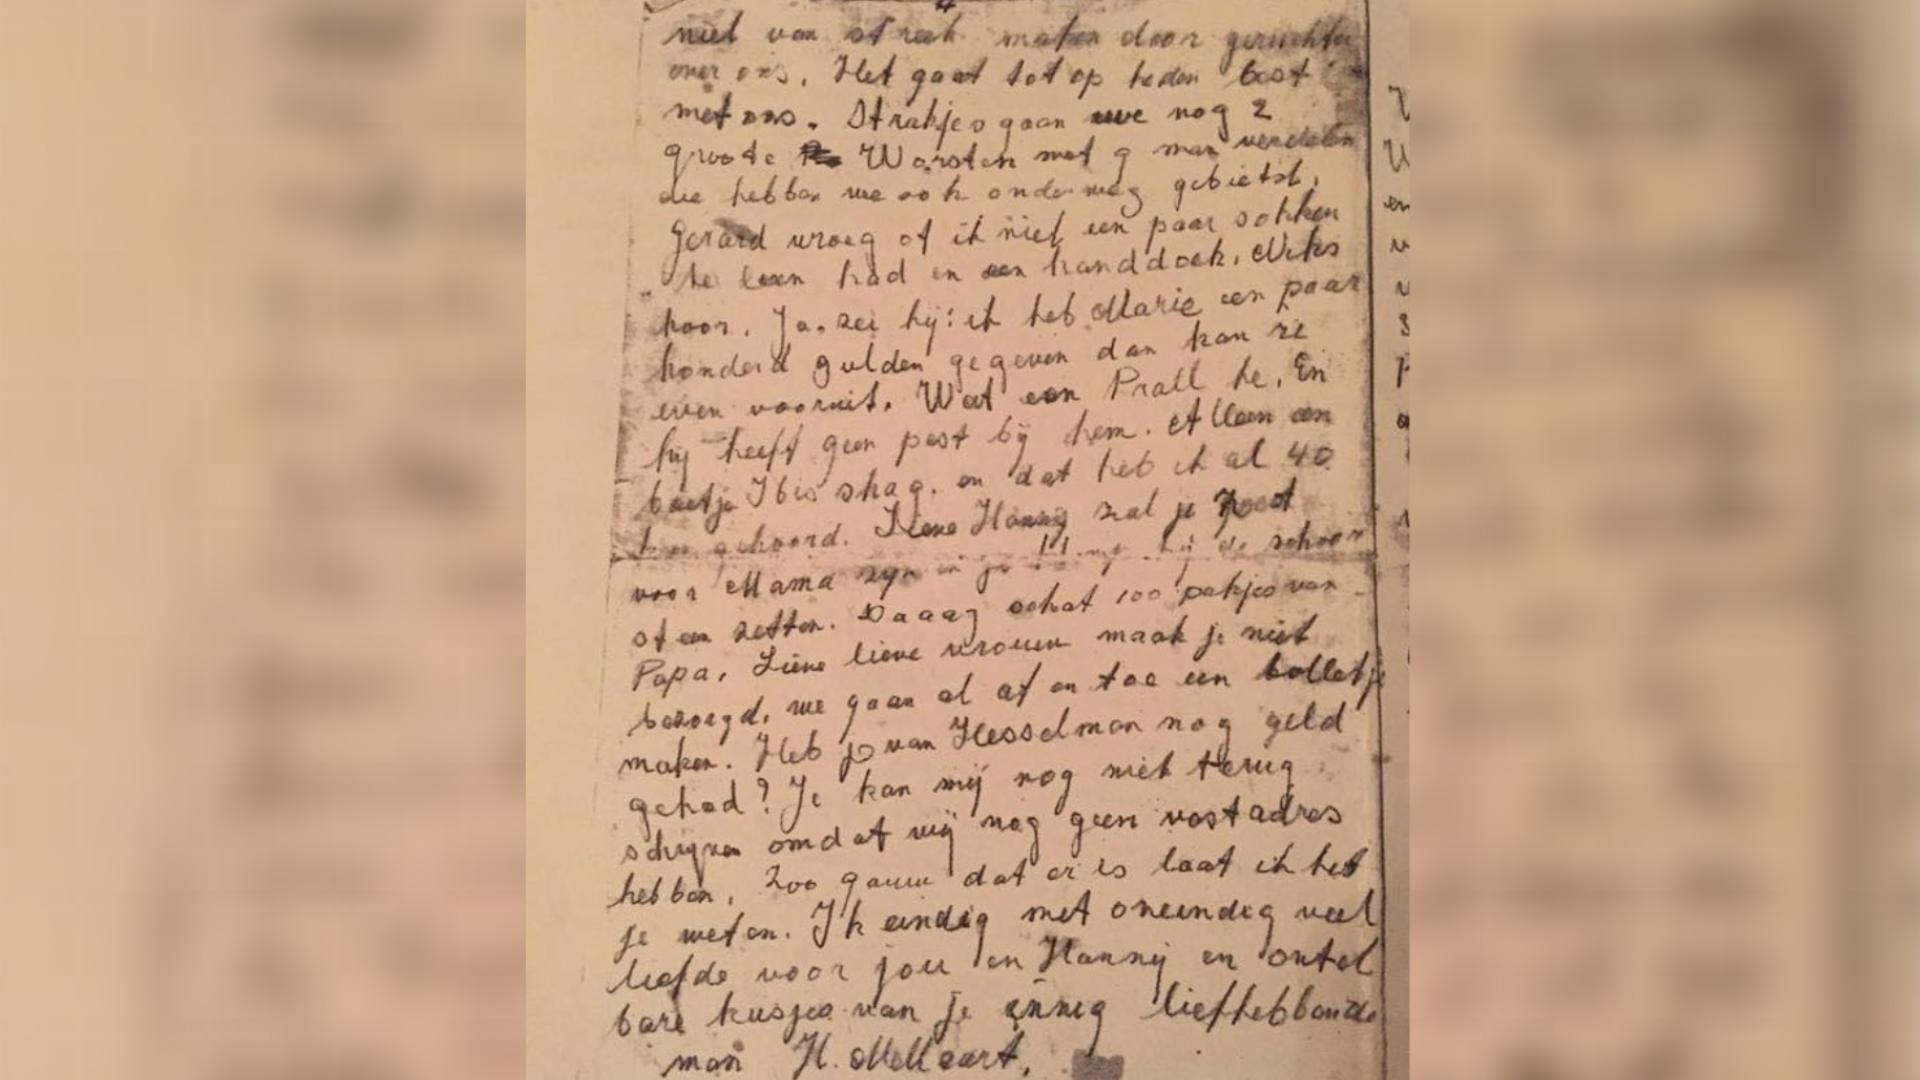 niet van streek maken door geruchten
over ons. Het gaat tot op heden best
met ons. Strakjes gaan we nog 2
groote Worsten met 9 man verdelen
die hebben we ook onderweg gebietst.
Gerard vroeg of ik niet een paar sokken
te leen had en een handdoek. Niks
hoor. Ja, zei hij: ik heb Marie een paar
honderd gulden gegeven dan kan ze
even vooruit. Wat een Prall he. En
hij heeft geen post bij hem. Alleen een
beetje Ibis shag. en dat heb ik al 40
gehoord. Lieve Hanny zal je zoet
voor Mama zijn en je bij de schoor
steen zetten. Daaag schat 100 pakjes van
Papa. Lieve lieve vrouw maak je niet
bezorgd, we gaan al af en toe een balletje
maken. Heb je van Hesselman nog geld
gehad? Je kan mij nog niet terug
schrijven omdat wij nog geen vast adres
hebben. Zoo gauw dat er is laat ik het
je weten. Ik eindig met oneindig veel
liefde voor jou en Hannij en ontel
bare kusjes van je innig liefhebbende
man H.